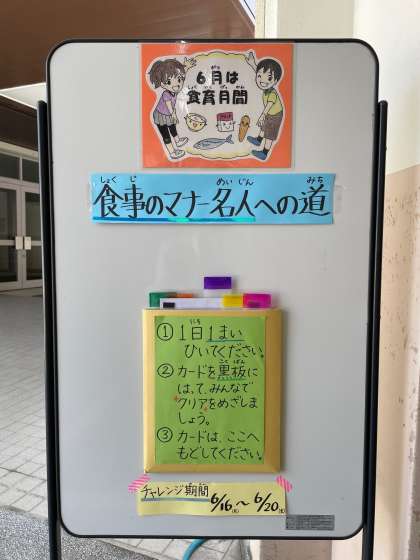 6月は
食育月間
食事のマナー名人への道
① 1日1まい
ひいてください。
② カードを黒板に
はって、みんなで
クリアをめざしま
しょう。
③ カードは、ここへ
もどしてください。
チャレンジ期間
6/16(月)～6/20(金)